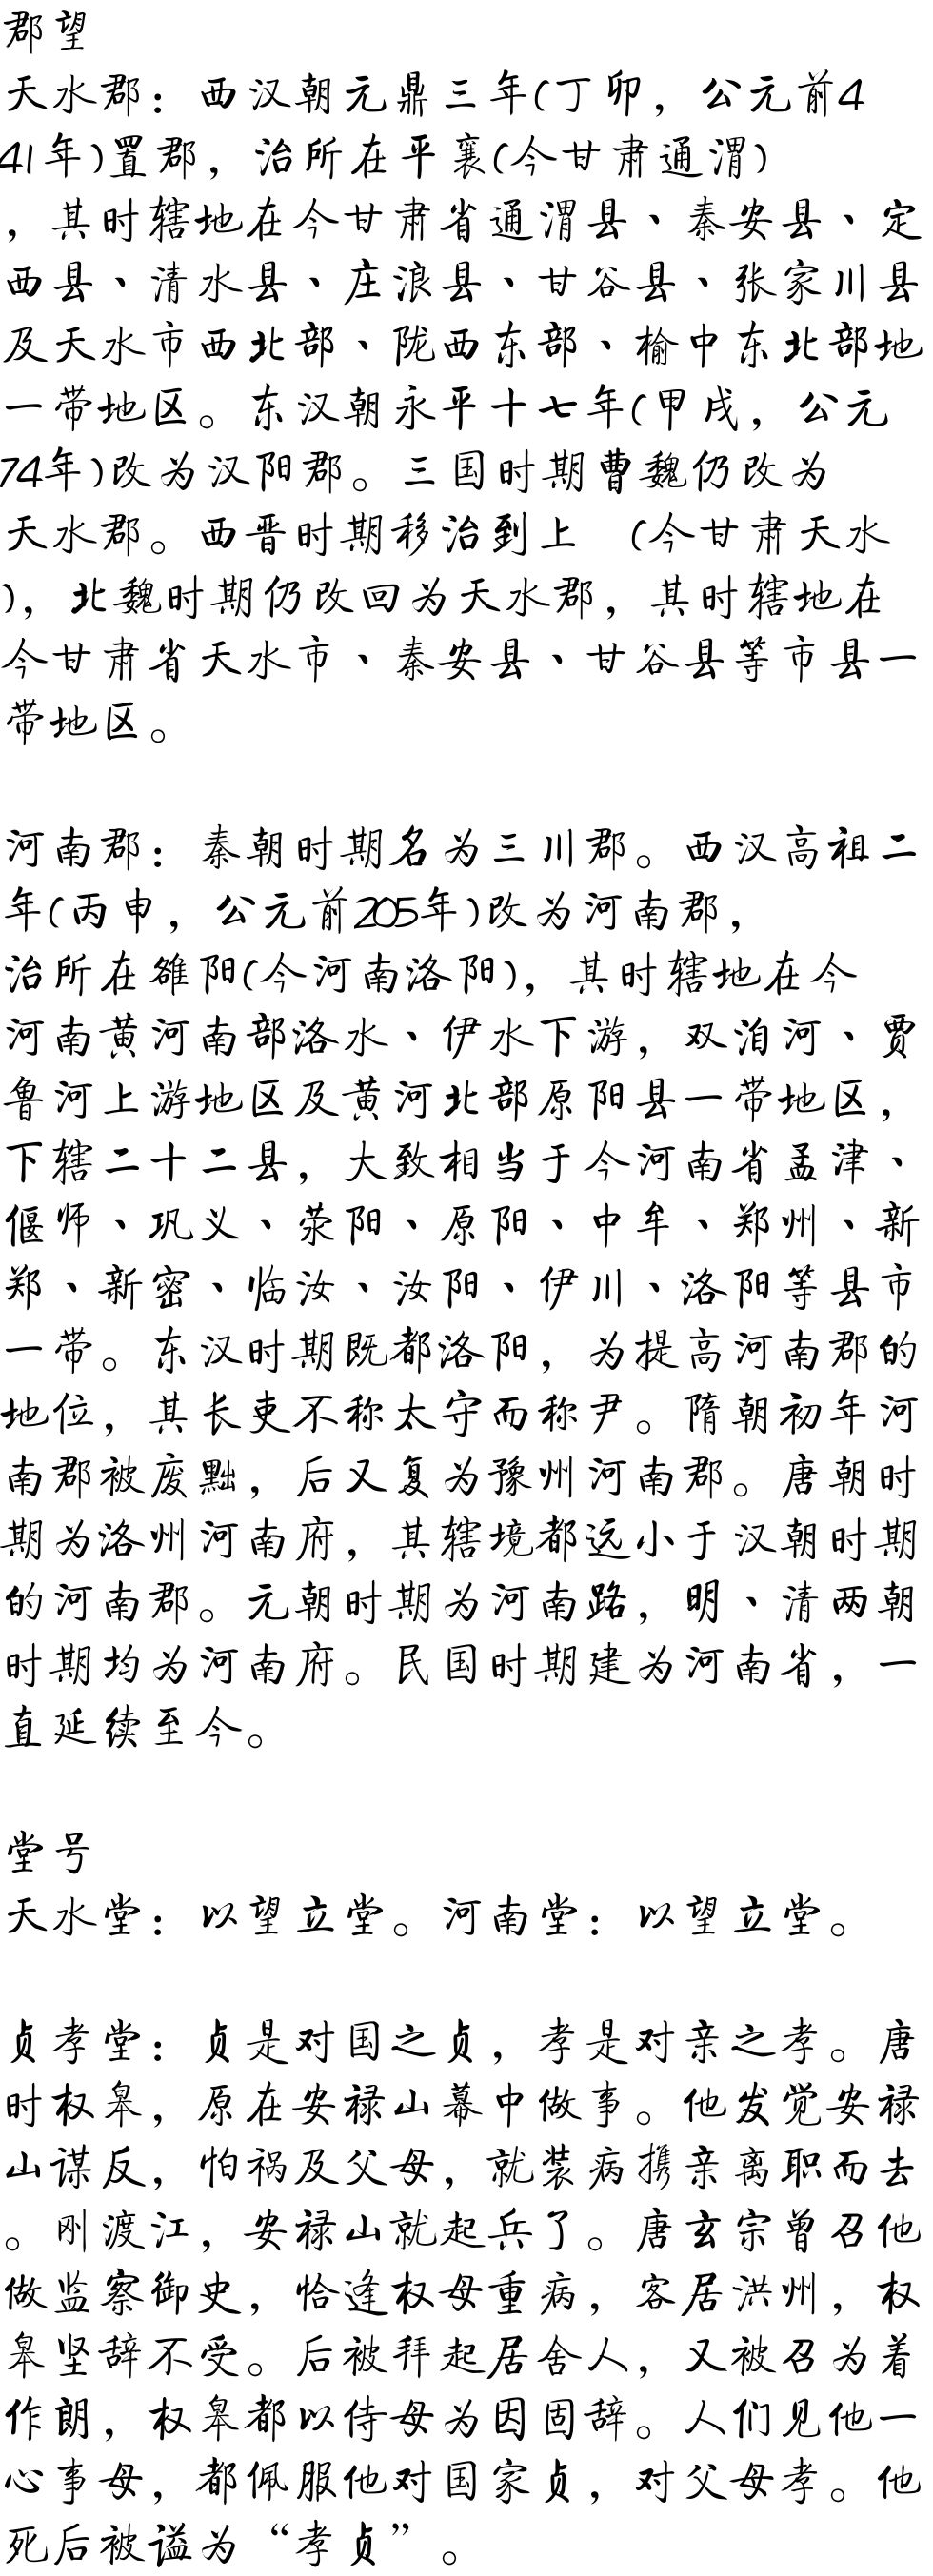 郡望
天水郡：西汉朝元鼎三年(丁卯，公元前4
41年)置郡，治所在平襄(今甘肃通渭)
，其时辖地在今甘肃省通渭县、秦安县、定
西县、清水县、庄浪县、甘谷县、张家川县
及天水市西北部、陇西东部、榆中东北部地
一带地区。东汉朝永平十七年(甲戌，公元
74年)改为汉阳郡。三国时期曹魏仍改为
天水郡。西晋时期移治到上　(今甘肃天水
)，北魏时期仍改回为天水郡，其时辖地在
今甘肃省天水市、秦安县、甘谷县等市县一
带地区。
河南郡：秦朝时期名为三川郡。西汉高祖二
年(丙申，公元前205年)改为河南郡，
治所在雒阳(今河南洛阳)，其时辖地在今
河南黄河南部洛水、伊水下游，双洎河、贾
鲁河上游地区及黄河北部原阳县一带地区，
下辖二十二县，大致相当于今河南省孟津、
偃师、巩义、荥阳、原阳、中牟、郑州、新
郑、新密、临汝、汝阳、伊川、洛阳等县市
一带。东汉时期既都洛阳，为提高河南郡的
地位，其长吏不称太守而称尹。隋朝初年河
南郡被废黜，后又复为豫州河南郡。唐朝时
期为洛州河南府，其辖境都远小于汉朝时期
的河南郡。元朝时期为河南路，明、清两朝
时期均为河南府。民国时期建为河南省，一
直延续至今。
堂号
天水堂：以望立堂。河南堂：以望立堂。
贞孝堂：贞是对国之贞，孝是对亲之孝。唐
时权皋，原在安禄山幕中做事。他发觉安禄
山谋反，怕祸及父母，就装病携亲离职而去
。刚渡江，安禄山就起兵了。唐玄宗曾召他
做监察御史，恰逢权母重病，客居洪州，权
皋坚辞不受。后被拜起居舍人，又被召为着
作朗，权皋都以侍母为因固辞。人们见他一
心事母，都佩服他对国家贞，对父母孝。他
死后被谥为“孝贞”。